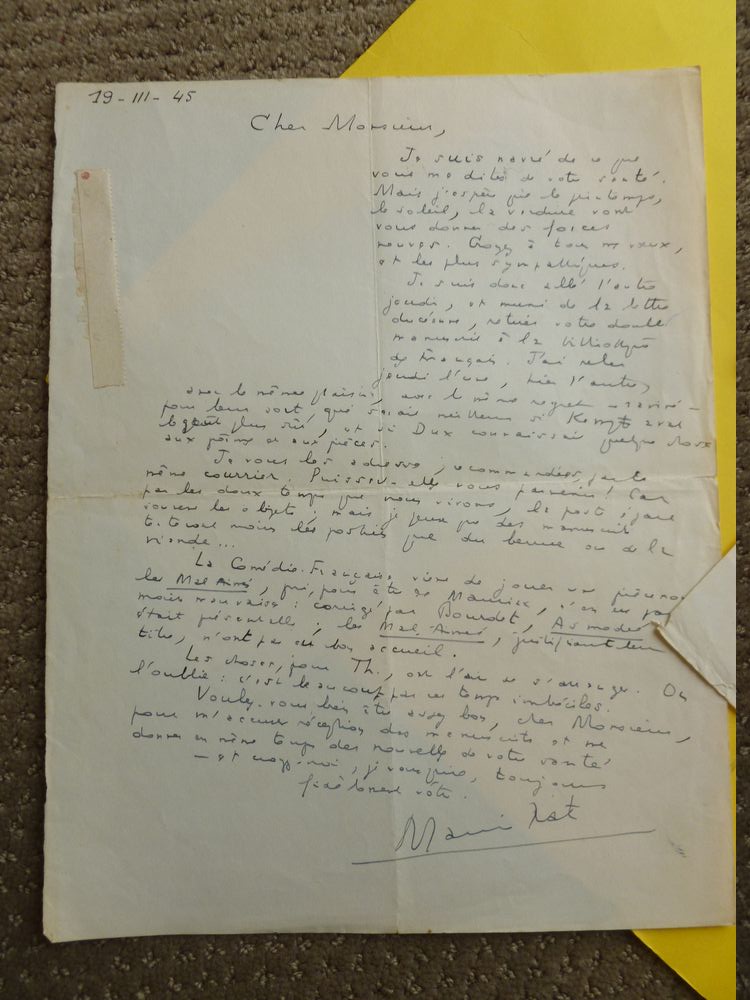 19-III-45
Cher Monsieur,
Je suis navré de ce que
vous me dites de votre santé.
Mais j'espère que le printemps,
le soleil, la verdure vont
vous donner des forces
neuves. Croyez à tous mes vœux,
et les plus sympathiques.
Je suis donc allé l'autre
jeudi, et muni de la lettre
, retirer votre double
manuscrit à la bibliothèque
du Français. J'ai relu
jeudi l'une, hier l'autre,
avec le même plaisir, avec le même regret ravivé -
pour leur sort, que serait meilleur si Kempf avait
le goût plus sûr, et si Dux connaissait quelque chose
aux poèmes et aux pièces.
Je vous les adresse, recommandées, par le
même courrier. Puissent-elles vous parvenir! Car
par les doux temps que nous vivons, la poste égare
souvent les objets; mais je pense que des manuscrits
tentent moins les postiers que du beurre ou de la
viande...
La Comédie-Française vient de jouer
les Mal Aimés, qui, pour être de Mauriac, n'en est pas
moins mauvais: corrigé par Bourdet, Asmodée
était présentable; les Mal-Aimés, justifiant leur
titre, n'ont pas eu bon accueil.
Les choses, pour Th., ont l'air de s'arranger. On
l'oublie: c'est beaucoup par ces temps imbéciles.
Voulez-vous bien être assez bon, cher Monsieur,
pour m'accuser réception des manuscrits et me
donner en même temps des nouvelles de votre santé
- et croyez-moi, je vous prie, toujours
fidèlement vôtre.